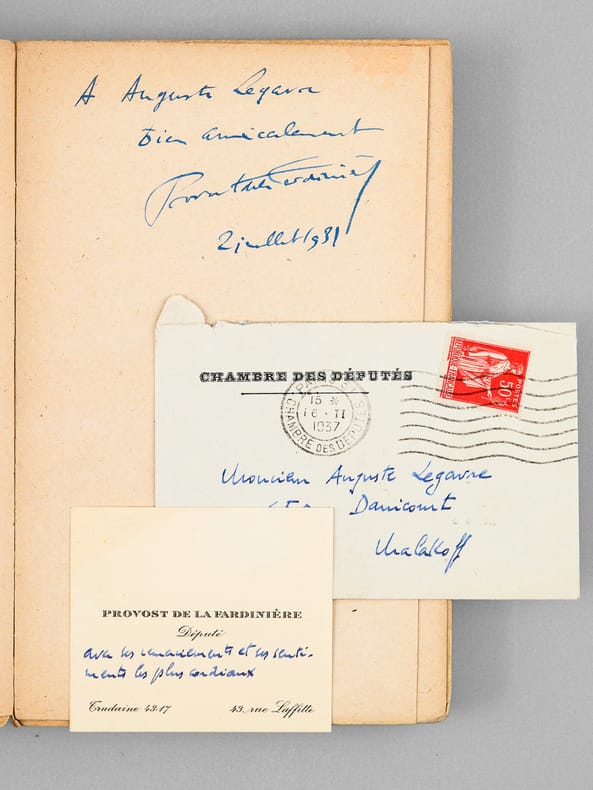 A Auguste Legavre
bien amicalement
Provost de la Fardinière
2 juillet 1931
CHAMBRE DES DÉPUTÉS
15 *
16 · II
1937
CHAMBRE DES DÉPUTÉS
POSTES
50c
Monsieur Auguste Legavre
Danicourt
Malakoff
PROVOST DE LA FARDINIÈRE
Député
avec ses remerciements et ses senti-
ments les plus cordiaux
Trudaine 43-17
43, rue Laffitte